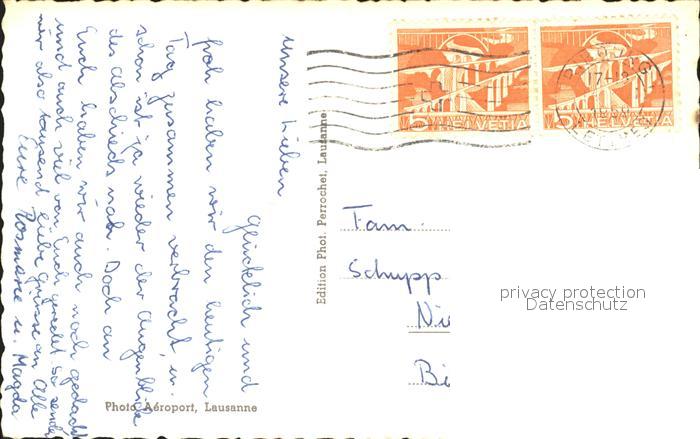 unsere Lieben
glücklich und
froh haben wir den heutigen
Tag zusammen verbracht, u.
schon ist ja wieder der Augenblick
des Abschieds nah. Doch an
Euch haben wir auch noch gedacht
und auch viel von Euch geredet. So senden
wir also tausend liebe Grüsse an Alle
Eure Rosmarie u. Magda
Photo Aéroport, Lausanne
Edition Phot. Perrochet, Lausanne
5 HELVETIA
5 HELVETIA
Fam.
Schupp
Ni
Bi
privacy protection
Datenschutz